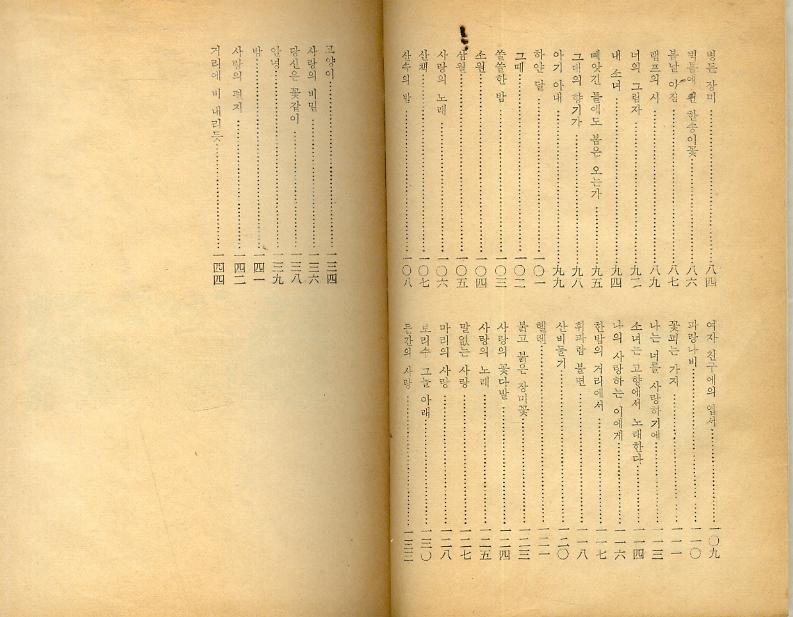 병든 장미……八四
벽틈에 핀 한송이꽃……八六
봄날 아침……八七
램프의 시……八九
너의 그림자……九二
내 소녀……九四
빼앗긴 들에도 봄은 오는가……九五
그대의 향기가……九八
아기 아내……九九
하얀 달……一〇一
그때……一〇二
쓸쓸한 밤……一〇三
소원……一〇四
삼월……一〇五
사랑의 노래……一〇六
산책……一〇七
산수의 밤……一〇八
여자 친구에의 엽서……一〇九
파랑나비……一一〇
꽃피는 가지……一一一
나는 너를 사랑하기에……一一三
소녀는 고향에서 노래한다……一一四
나의 사랑하는 이에게……一一六
한밤의 거리에서……一一七
휘파람 불면……一一八
산비둘기……一二〇
헬렌……一二一
붉고 붉은 장미꽃……一二三
사랑의 꽃다발……一二四
사랑의 노래……一二五
말없는 사랑……一二七
마리의 사랑……一二八
보리수 그늘 아래……一三〇
둔간의 사랑……一三三
고양이……一三四
사랑의 비밀……一三六
당신은 꽃같이……一三八
안녕……一三九
밤……一四一
사랑의 편지……一四二
거리에 비 내리듯……一四四